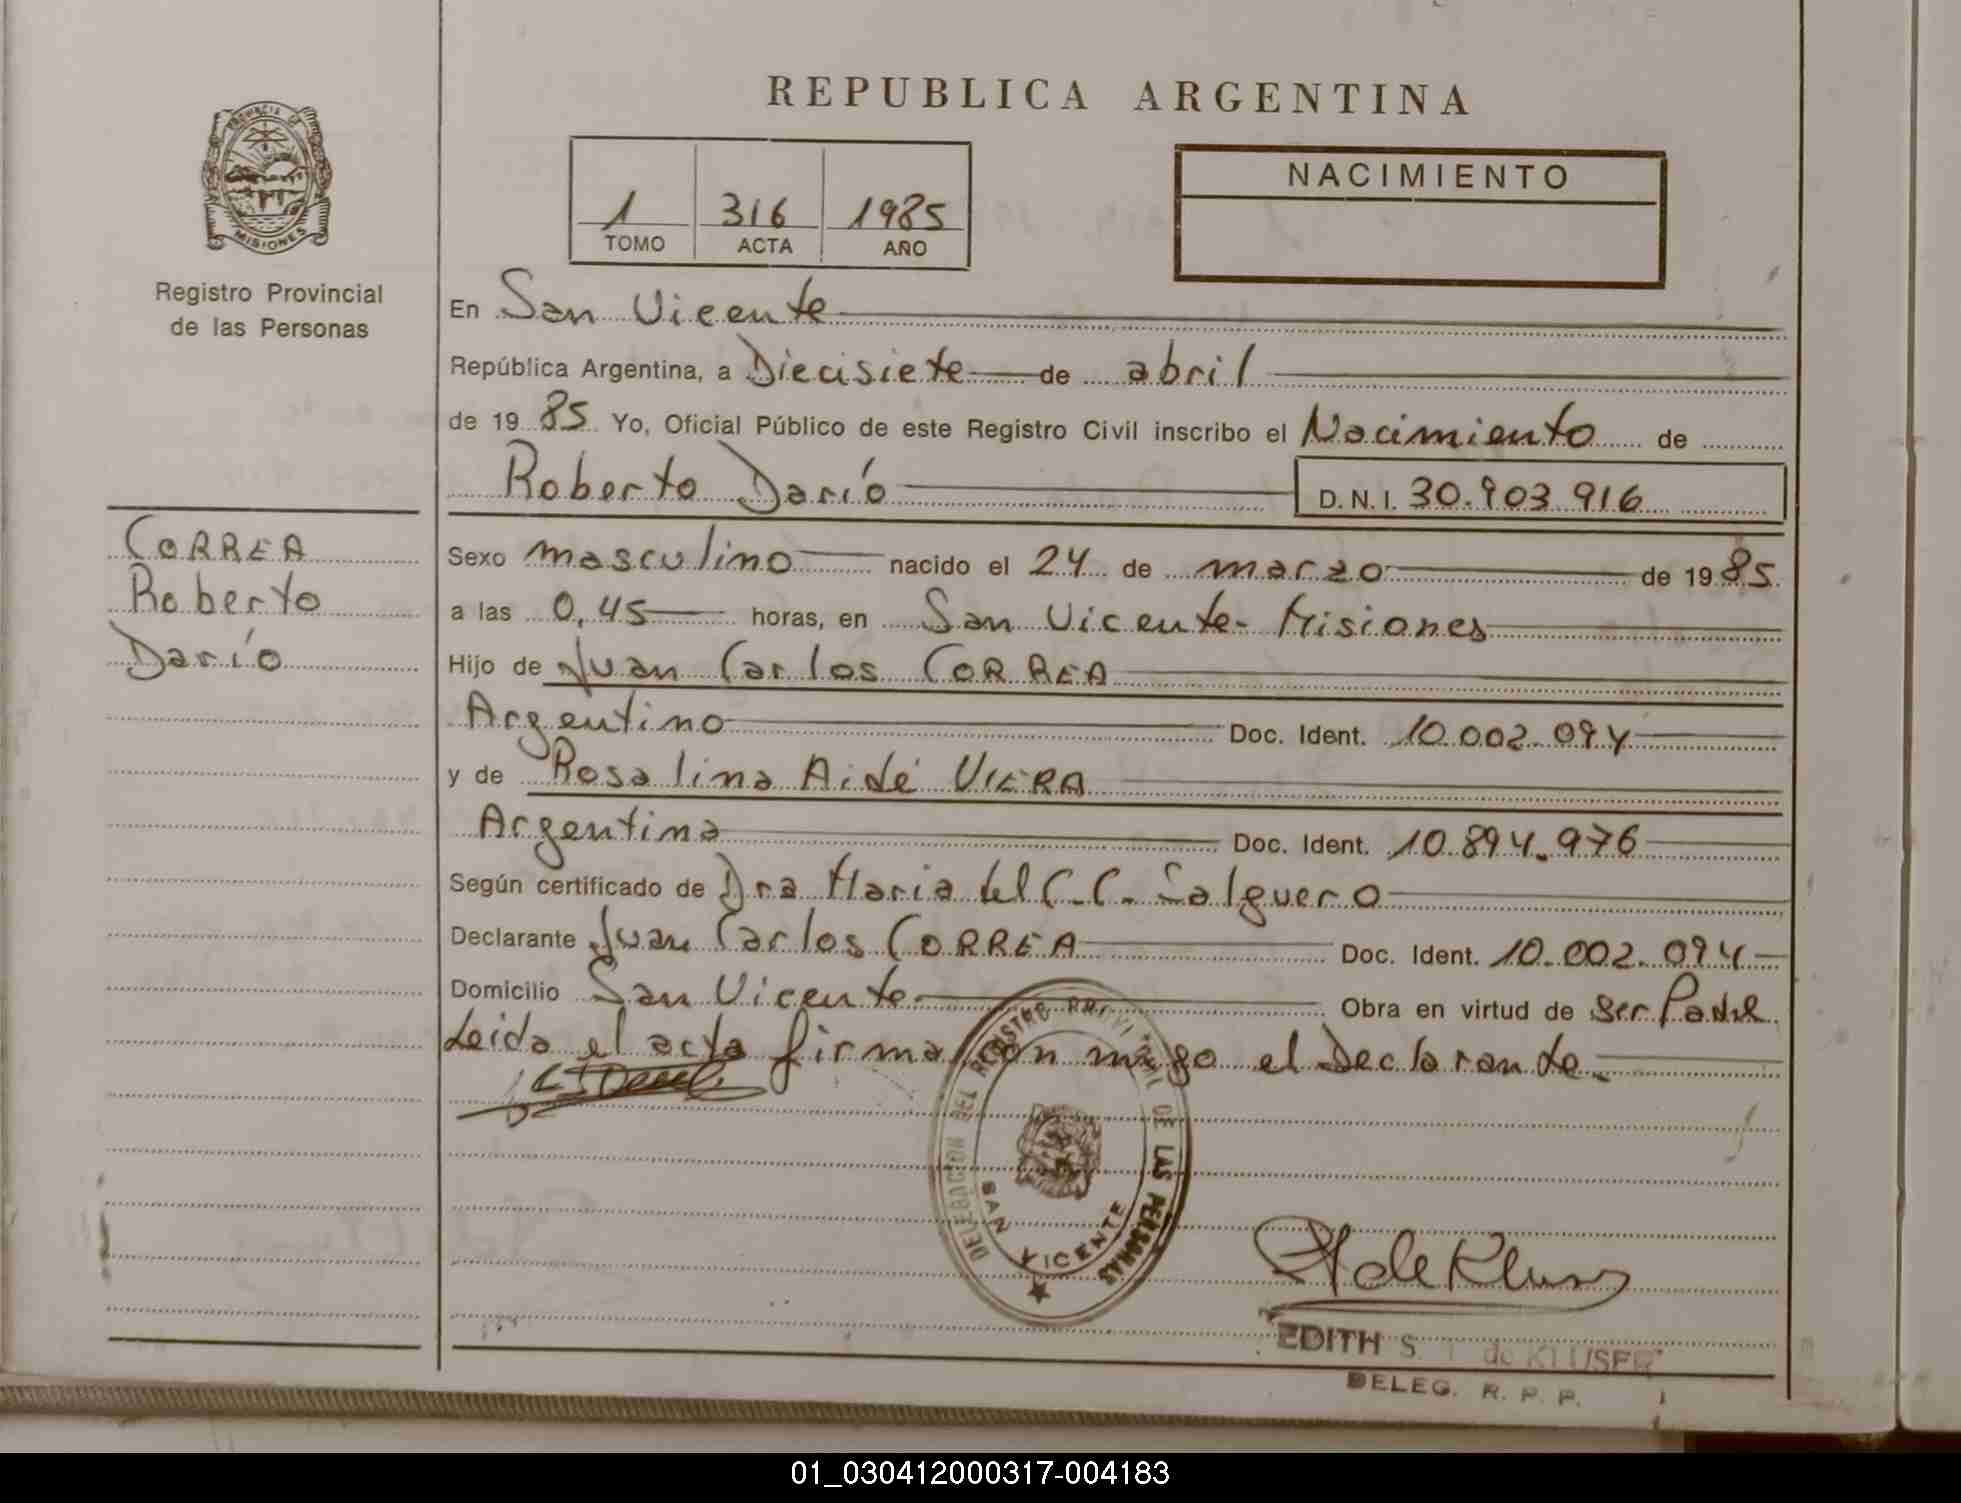 REPUBLICA ARGENTINA
PROVINCIA DE
MISIONES
Registro Provincial
de las Personas
1 316 1985
TOMO ACTA AÑO
NACIMIENTO
En San Vicente
República Argentina, a Diecisiete de abril
de 19 85 Yo, Oficial Público de este Registro Civil inscribo el Nacimiento de
Roberto Darío D.N.I. 30.903 916
CORREA
Roberto
Darío
Sexo masculino nacido el 24 de marzo de 19 85
a las 0,45 horas, en San Vicente- Misiones
Hijo de Juan Carlos CORREA
Argentino Doc. Ident. 10.002.094
y de Rosalina Aidé VIERA
Argentina Doc. Ident. 10.894.976
Según certificado de Dra Maria del C. C. Salguero
Declarante Juan Carlos CORREA Doc. Ident. 10.002.094
Domicilio San Vicente Obra en virtud de ser Padre
Leida el acta firma con migo el Declarante.
DELEGACION DEL REGISTRO DE LAS PERSONAS
SAN VICENTE
EDITH S. de KLUSER
DELEG. R. P. P.
01_030412000317-004183